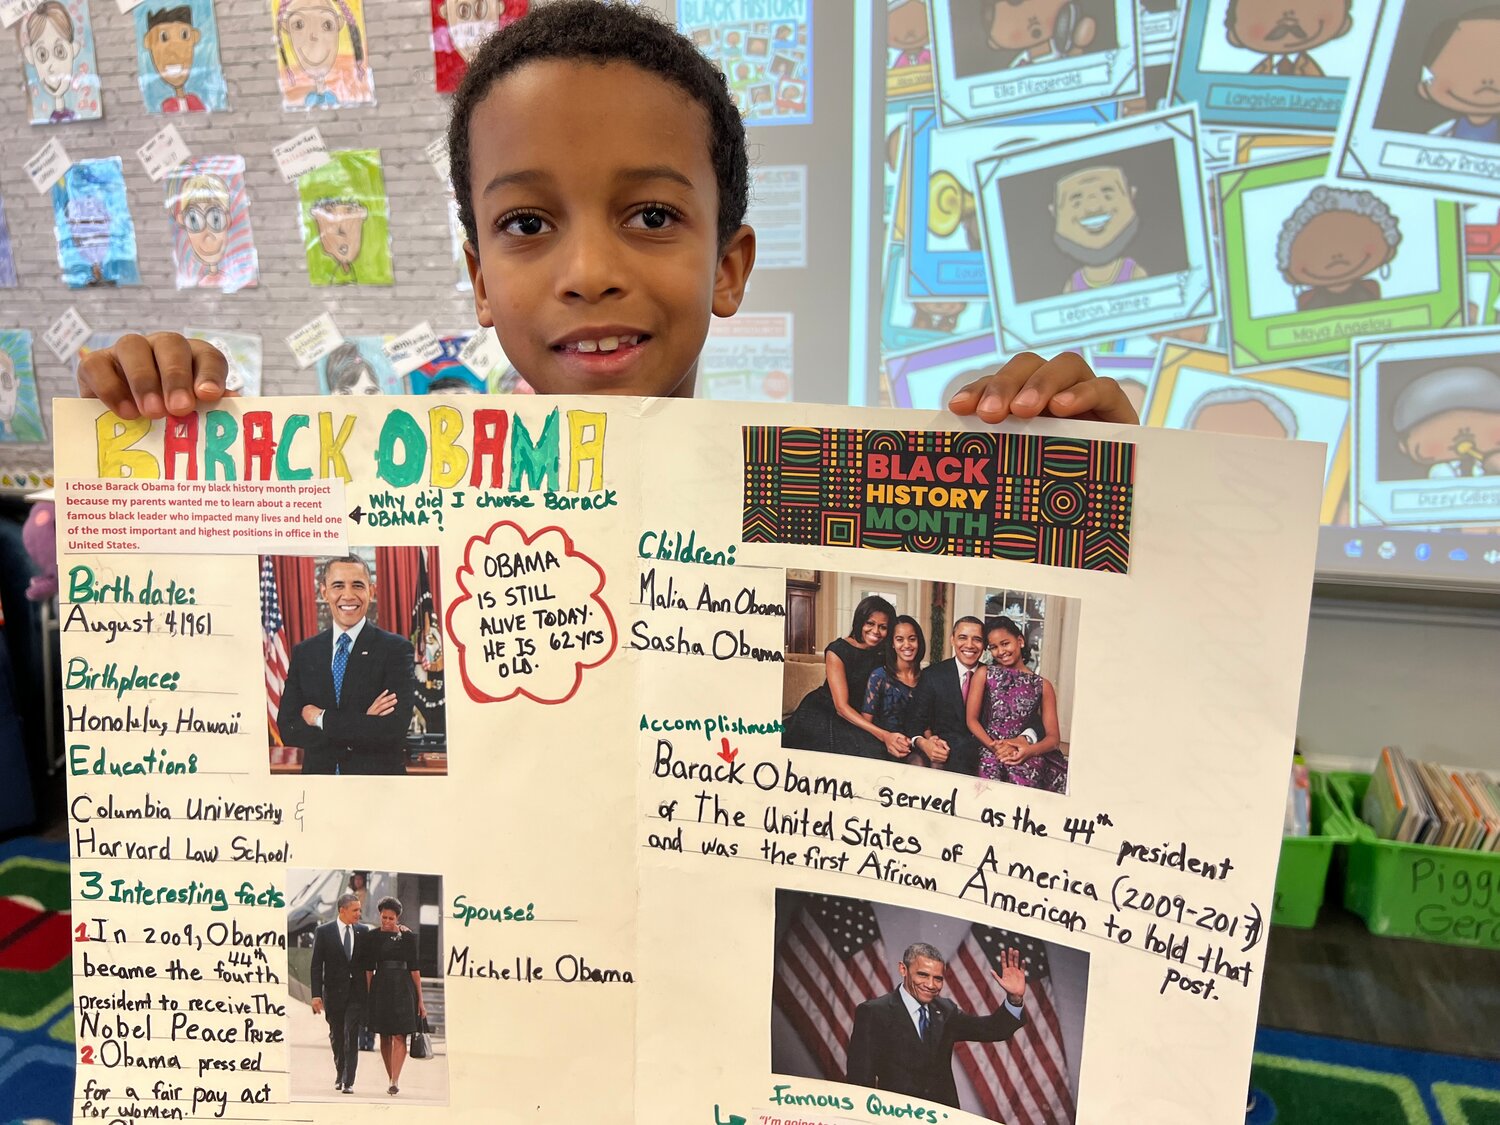 BLACK HISTORY
Ella Fitzgerald
Langston Hughes
Ruby Bridges
Lebron James
Maya Angelou
BARACK OBAMA
I chose Barack Obama for my black history month project
because my parents wanted me to learn about a recent
famous black leader who impacted many lives and held one
of the most important and highest positions in office in the
United States.
Why did I choose Barack
OBAMA?
Birthdate:
August 4, 1961
Birthplace:
Honolulu, Hawaii
Education:
Columbia University &
Harvard Law School.
3 Interesting facts
1. In 2009, Obama
became the fourth 44th
president to receive The
Nobel Peace Prize
2. Obama pressed
for a fair pay act
for women.
OBAMA
IS STILL
ALIVE TODAY.
HE IS 62 yrs
OLD.
Spouse:
Michelle Obama
BLACK
HISTORY
MONTH
Children:
Malia Ann Obama
Sasha Obama
Accomplishments
Barack Obama served as the 44th president
of The United States of America (2009-2017)
and was the first African American to hold that
post.
Famous Quotes.
Piggy
Gera